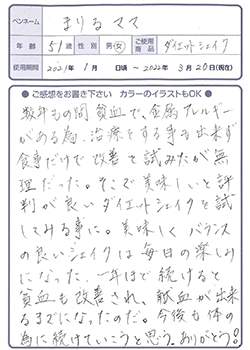 ペンネーム まりるママ
年齢 51才 性別 男・女 ご使用商品 ダイエットシェイク
使用期間 2021年 1月 日頃 〜 2022年 3月 20日(現在)
●ご感想をお書き下さい カラーのイラストもOK●
数年もの間 貧血で、金属アレルギー
がある為、治療をする事も出来ず
食事だけで改善を試みたが無
理だった。そこで美味しいと評
判が良いダイエットシェイクを試
してみる事に。美味しくバランス
の良いシェイクは毎日の楽しみ
になった。一年ほど続けると
貧血も改善され、献血が出来
るまでになったのだ。今後も体の
為に続けていこうと思う。ありがとう!